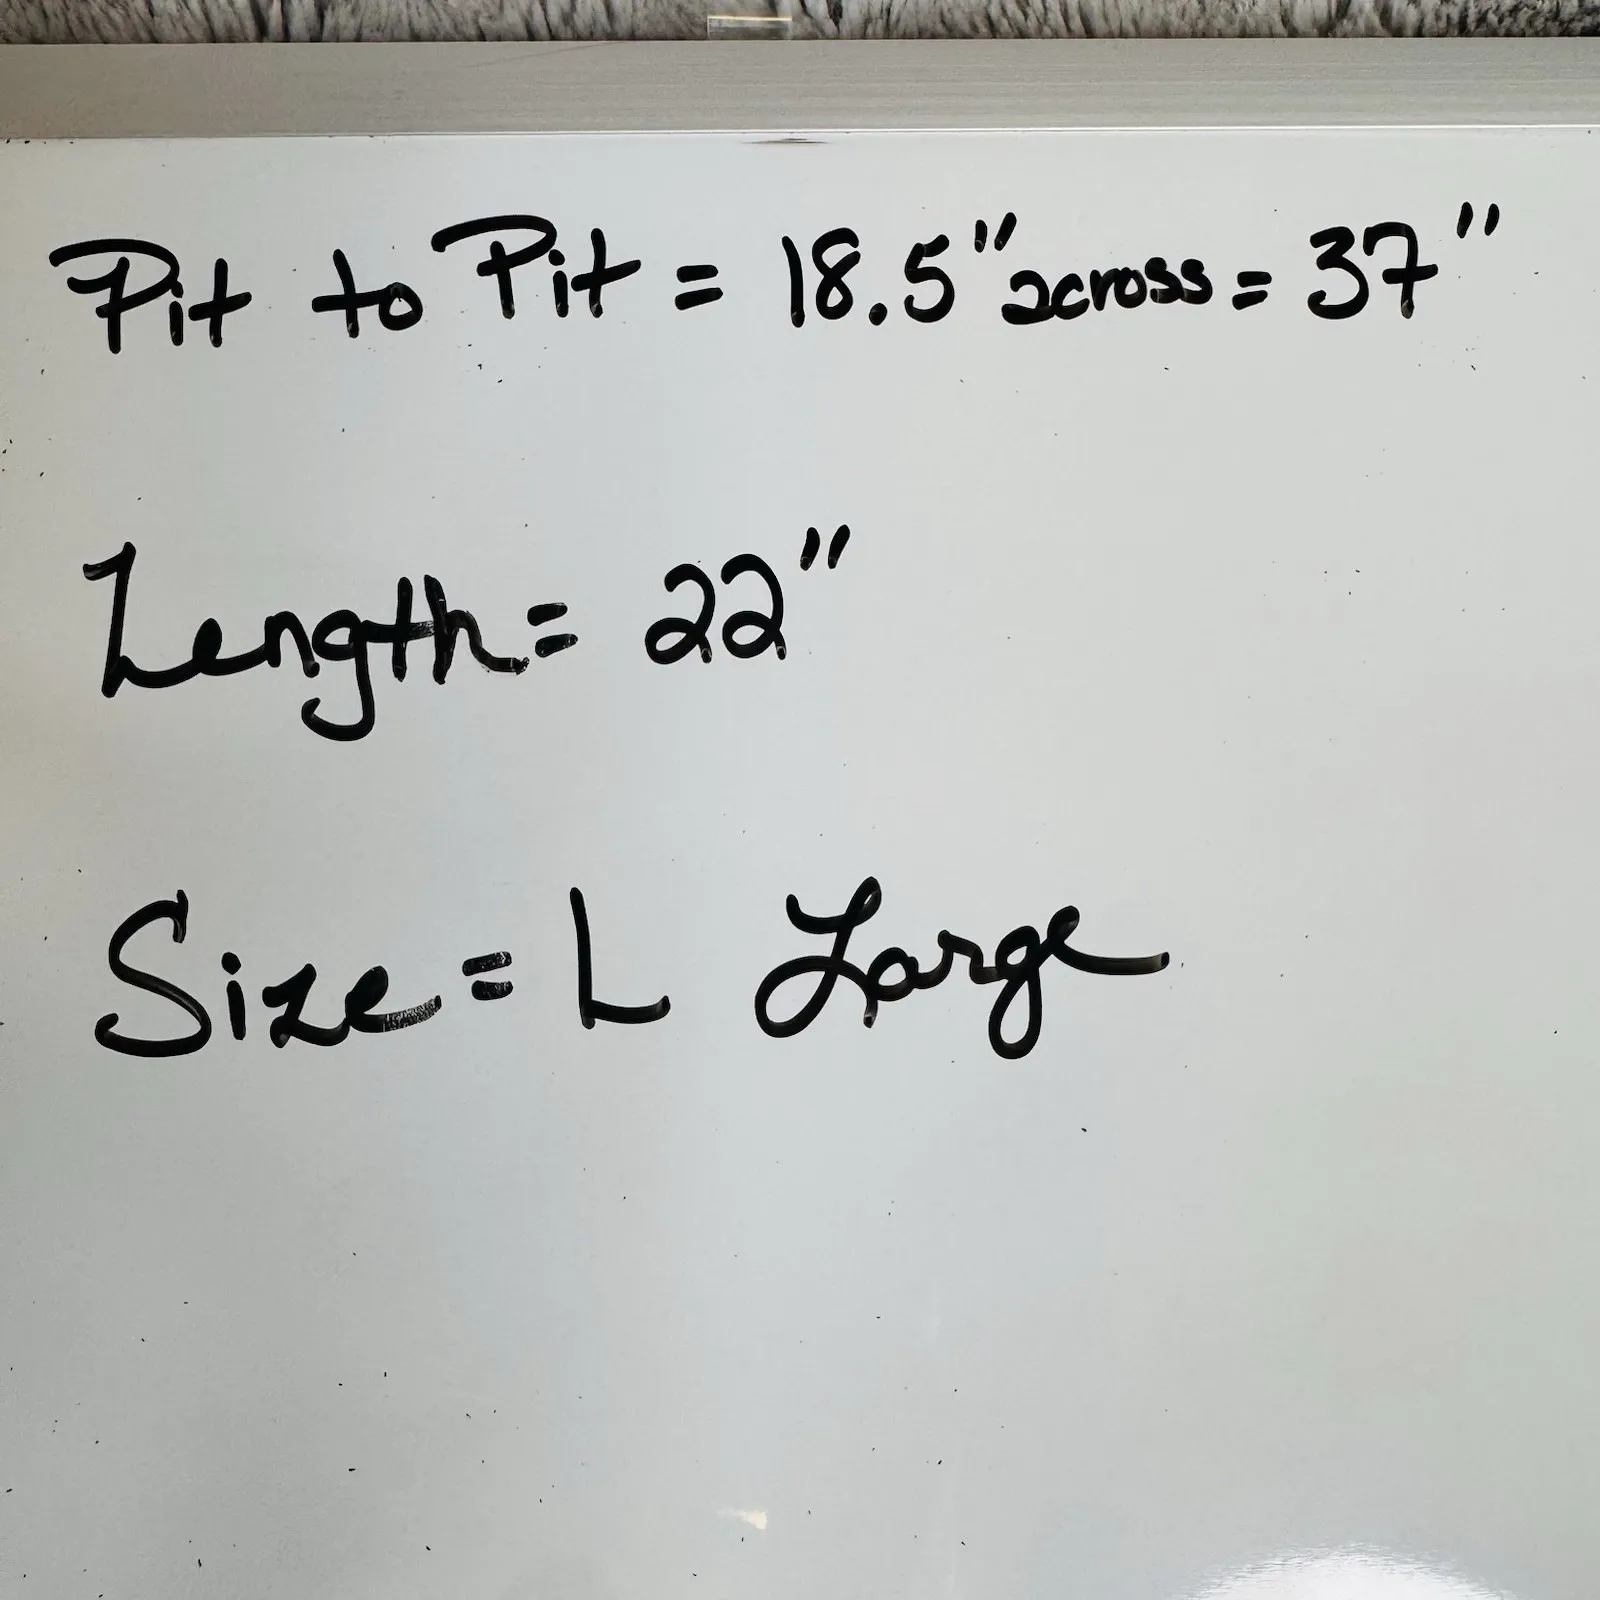 Pit to Pit = 18.5" across = 37"
Length = 22"
Size = L Large